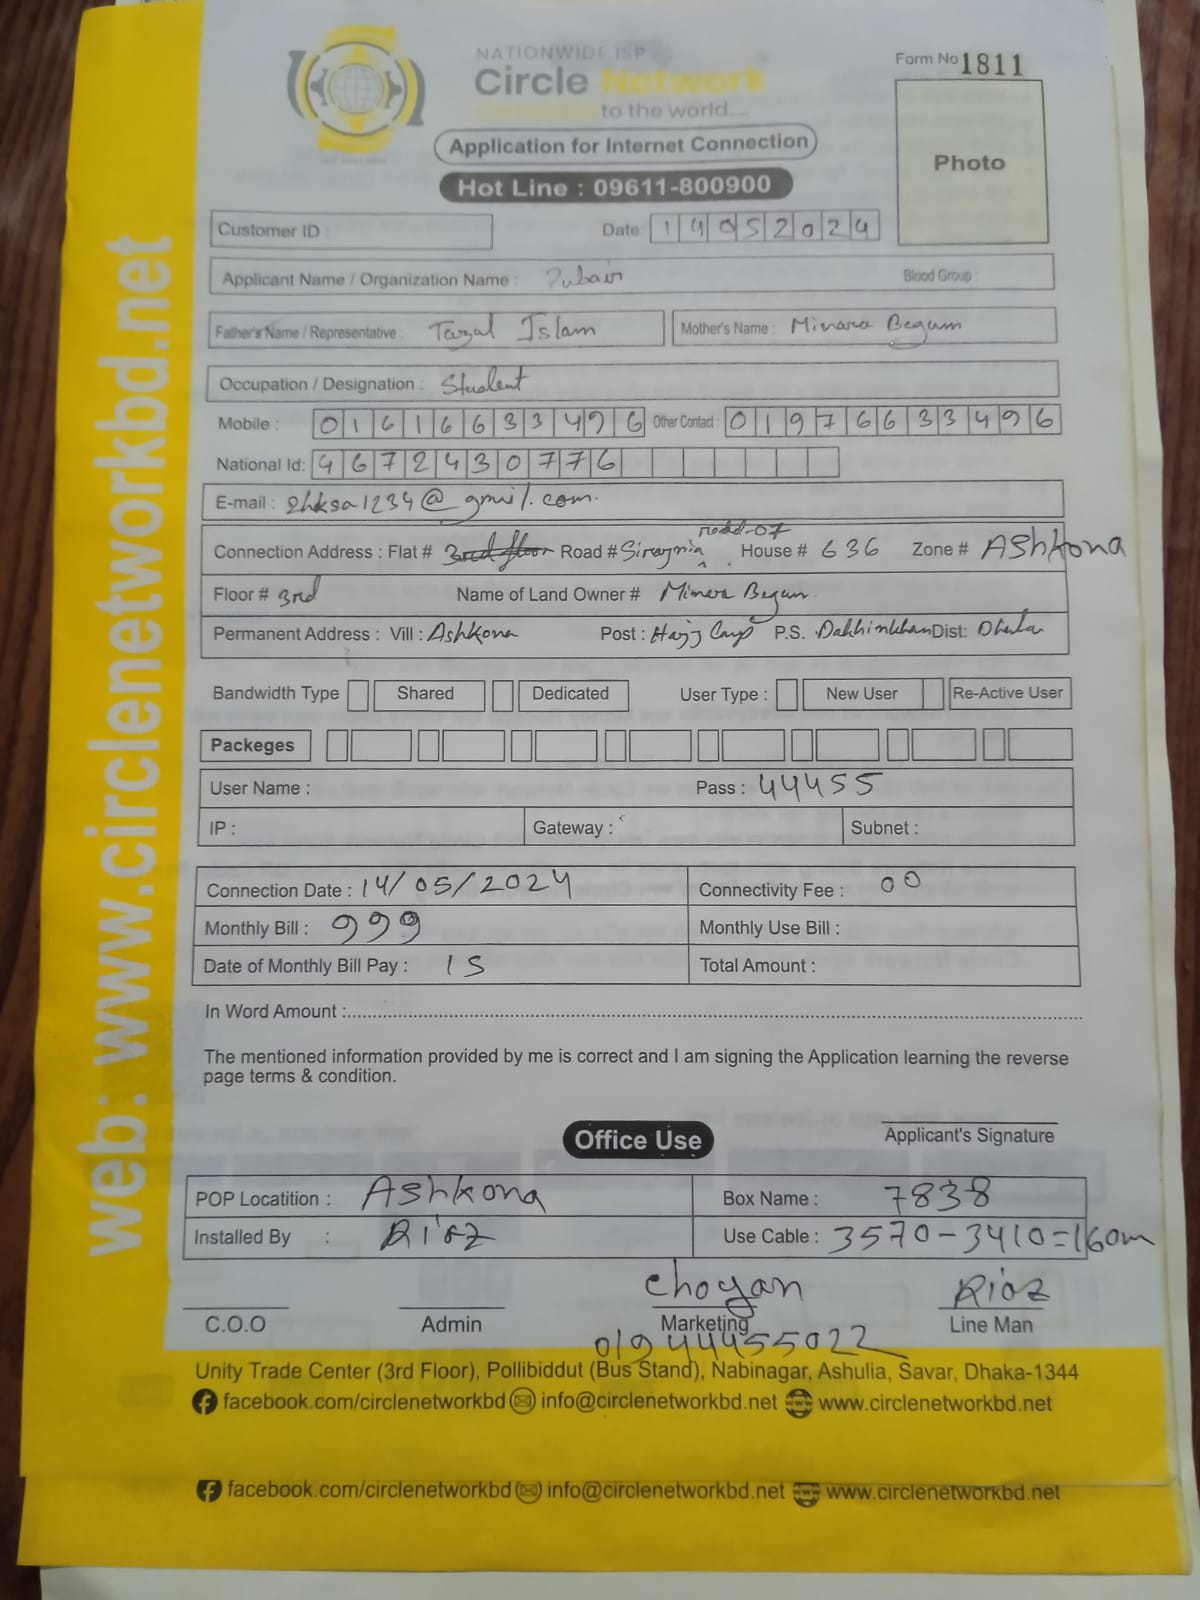 NATIONWIDE ISP
Circle Network
to the world....
Form No 1811
Application for Internet Connection
Photo
Hot Line : 09611-800900
Customer ID :
Date: 14052024
Applicant Name / Organization Name : Zubair Blood Group :
Father's Name / Representative : Tazul Islam Mother's Name : Minara Begum
Occupation / Designation : Student
Mobile : 01616633496 Other Contact : 01976633496
National Id: 4672430776
E-mail : @gmail.com.
road-07
Connection Address : Flat # Road # House # 636 Zone # Ashkona
Floor # 3rd Name of Land Owner # Minara Begum
Permanent Address : Vill : Ashkona Post : Hajj Camp P.S. Dakhinkhan Dist: Dhaka
Bandwidth Type Shared Dedicated User Type : New User Re-Active User
Packeges
User Name : Pass : 44455
IP : Gateway : Subnet :
Connection Date : 14/05/2024 Connectivity Fee : 00
Monthly Bill : 999 Monthly Use Bill :
Date of Monthly Bill Pay : 15 Total Amount :
In Word Amount :
The mentioned information provided by me is correct and I am signing the Application learning the reverse
page terms & condition.
Applicant's Signature
Office Use
POP Locatition : Ashkona Box Name : 7838
Installed By : Riaz Use Cable : 3570-3410=160m
Choyan Riaz
C.O.O Admin Marketing Line Man
01944455022
Unity Trade Center (3rd Floor), Pollibiddut (Bus Stand), Nabinagar, Ashulia, Savar, Dhaka-1344
facebook.com/circlenetworkbd info@circlenetworkbd.net www.circlenetworkbd.net
facebook.com/circlenetworkbd info@circlenetworkbd.net www.circlenetworkbd.net
web: www.circlenetworkbd.net